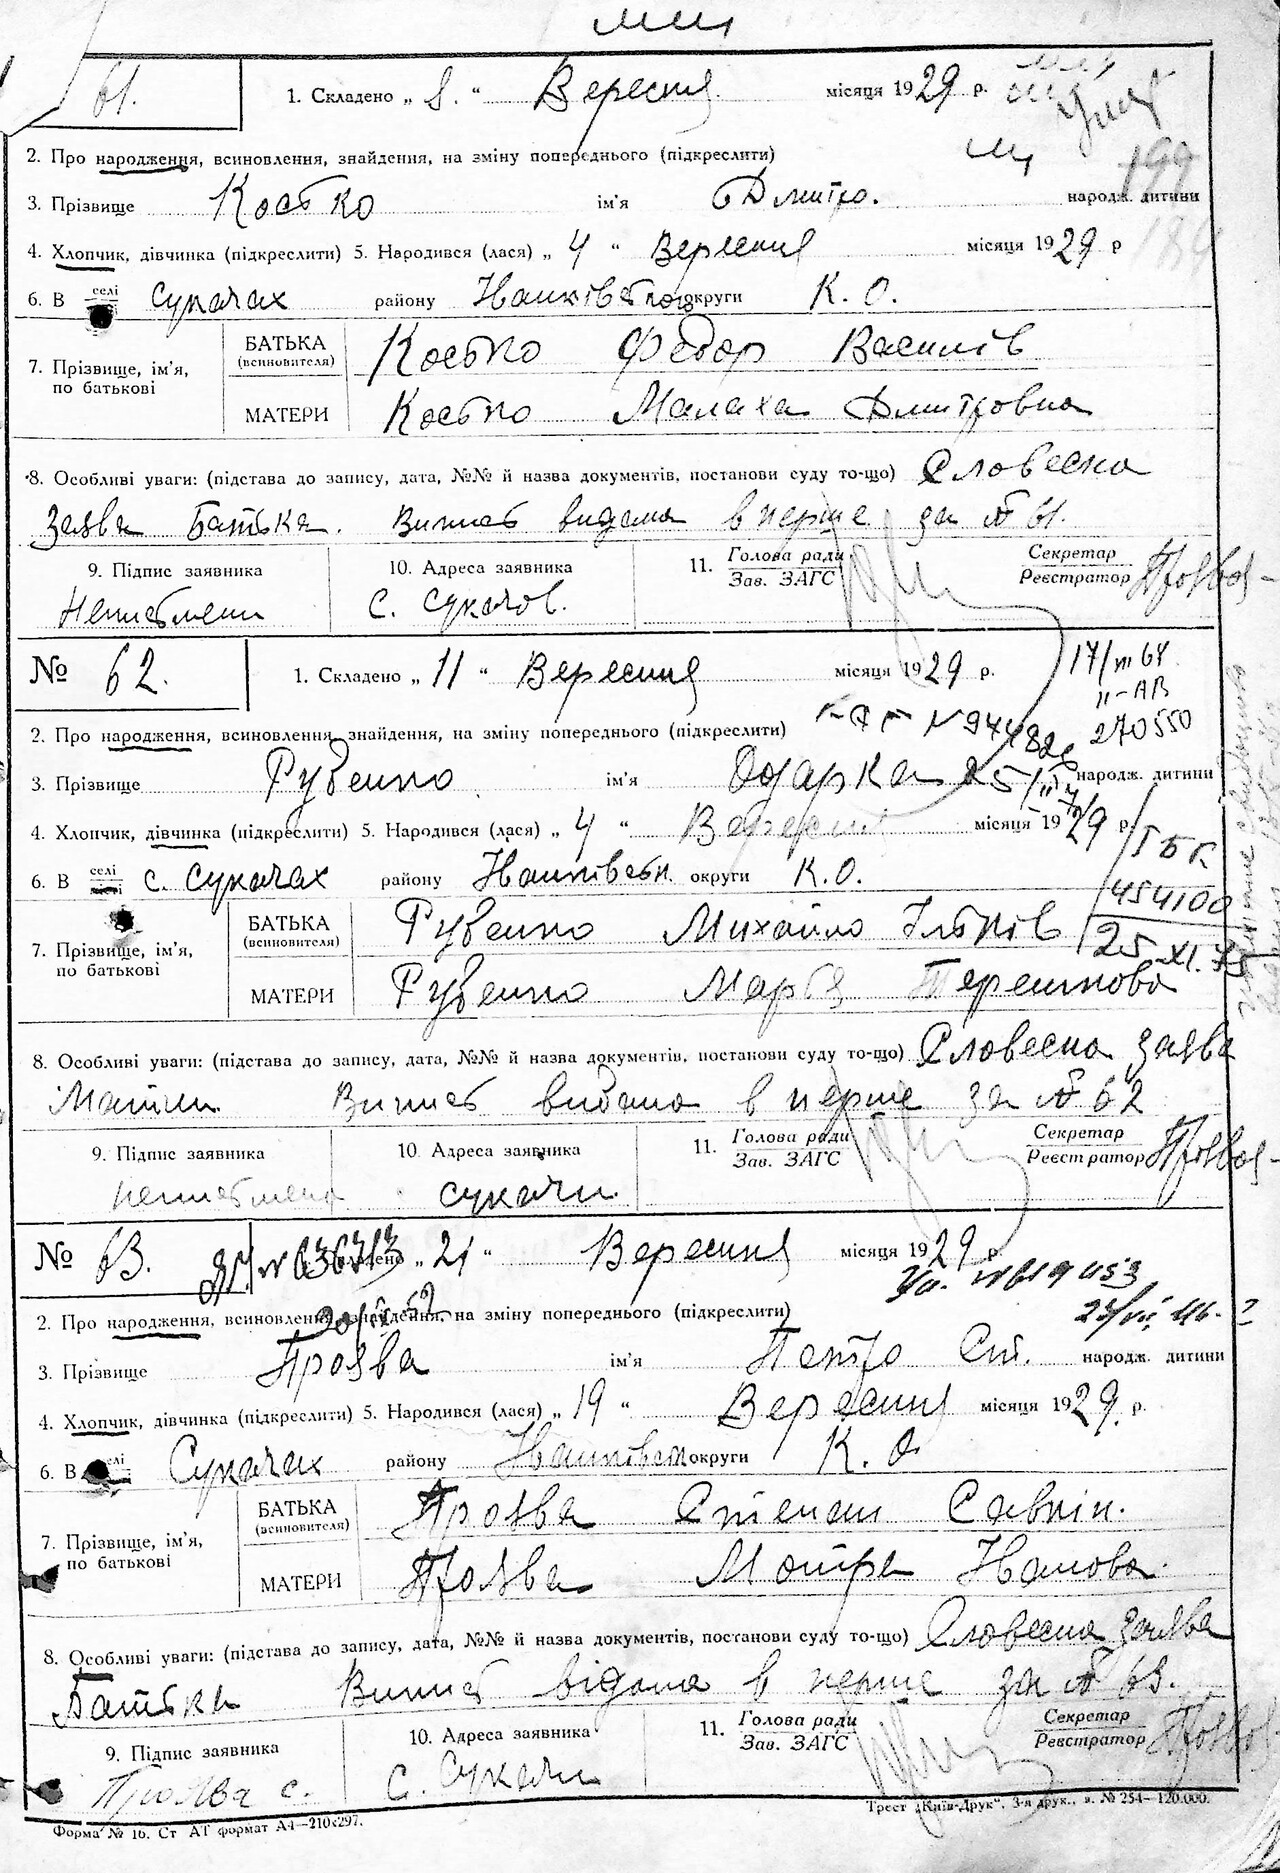 61. 1. Складено „ 8. “ Вересня місяця 1929 р.
2. Про народження, всиновлення, знайдення, на зміну попереднього (підкреслити)
199
3. Прізвище Костко ім'я Дмитро. народж. дитини
4. Хлопчик, дівчинка (підкреслити) 5. Народився (лася) „ 4 “ Вересня місяця 1929 р
184
6. В селі Сукачах району округи К. О.
7. Прізвище, ім'я, по батькові
БАТЬКА (всиновителя) Костко Федор Василів
МАТЕРИ Костко Малаха Дмитровна
8. Особливі уваги: (підстава до запису, дата, №№ й назва документів, постанови суду то-що) Словесна
Заява Батька. Випис видана в перше за № 61.
9. Підпис заявника 10. Адреса заявника 11. Голова ради Зав. ЗАГС Секретар Реєстратор
Неписмени с. Сукачов.
№ 62. 1. Складено „ 11 “ Вересня місяця 1929 р.
II-АВ
270550
2. Про народження, всиновлення, знайдення, на зміну попереднього (підкреслити)
3. Прізвище Рубенко ім'я Одарка народж. дитини
4. Хлопчик, дівчинка (підкреслити) 5. Народився (лася) „ 4 “ Вересня місяця 1929 р.
6. В селі с. Сукачах району округи К. О.
ІБК
454100
25-XI.75
7. Прізвище, ім'я, по батькові
БАТЬКА (всиновителя) Рубенко Михайло Ільків
МАТЕРИ Рубенко Мар'я Терешкова
8. Особливі уваги: (підстава до запису, дата, №№ й назва документів, постанови суду то-що) Словесна заява
Матки Випис видана в перше за № 62
9. Підпис заявника 10. Адреса заявника 11. Голова ради Зав. ЗАГС Секретар Реєстратор
неписмена Сукачи.
№ 63. „ 21 “ Вересня місяця 1929 р.
2. Про народження, всиновлення, знайдення, на зміну попереднього (підкреслити)
3. Прізвище Проява ім'я Петро Ст. народж. дитини
4. Хлопчик, дівчинка (підкреслити) 5. Народився (лася) „ 19 “ Вересня місяця 1929. р.
6. В селі Сукачах району округи К. О
7. Прізвище, ім'я, по батькові
БАТЬКА (всиновителя) Проява Степан Савкін.
МАТЕРИ Проява Мотря Иванова.
8. Особливі уваги: (підстава до запису, дата, №№ й назва документів, постанови суду то-що) Словесна заява
Батька Випис відана в перше за № 63.
9. Підпис заявника 10. Адреса заявника 11. Голова ради Зав. ЗАГС Секретар Реєстратор
Проява с. с. Сукачи
Форма № 16. Ст АТ формат А4—210х297.
Трест „Київ-Друк“, 3-я друк., з. № 254—120.000.